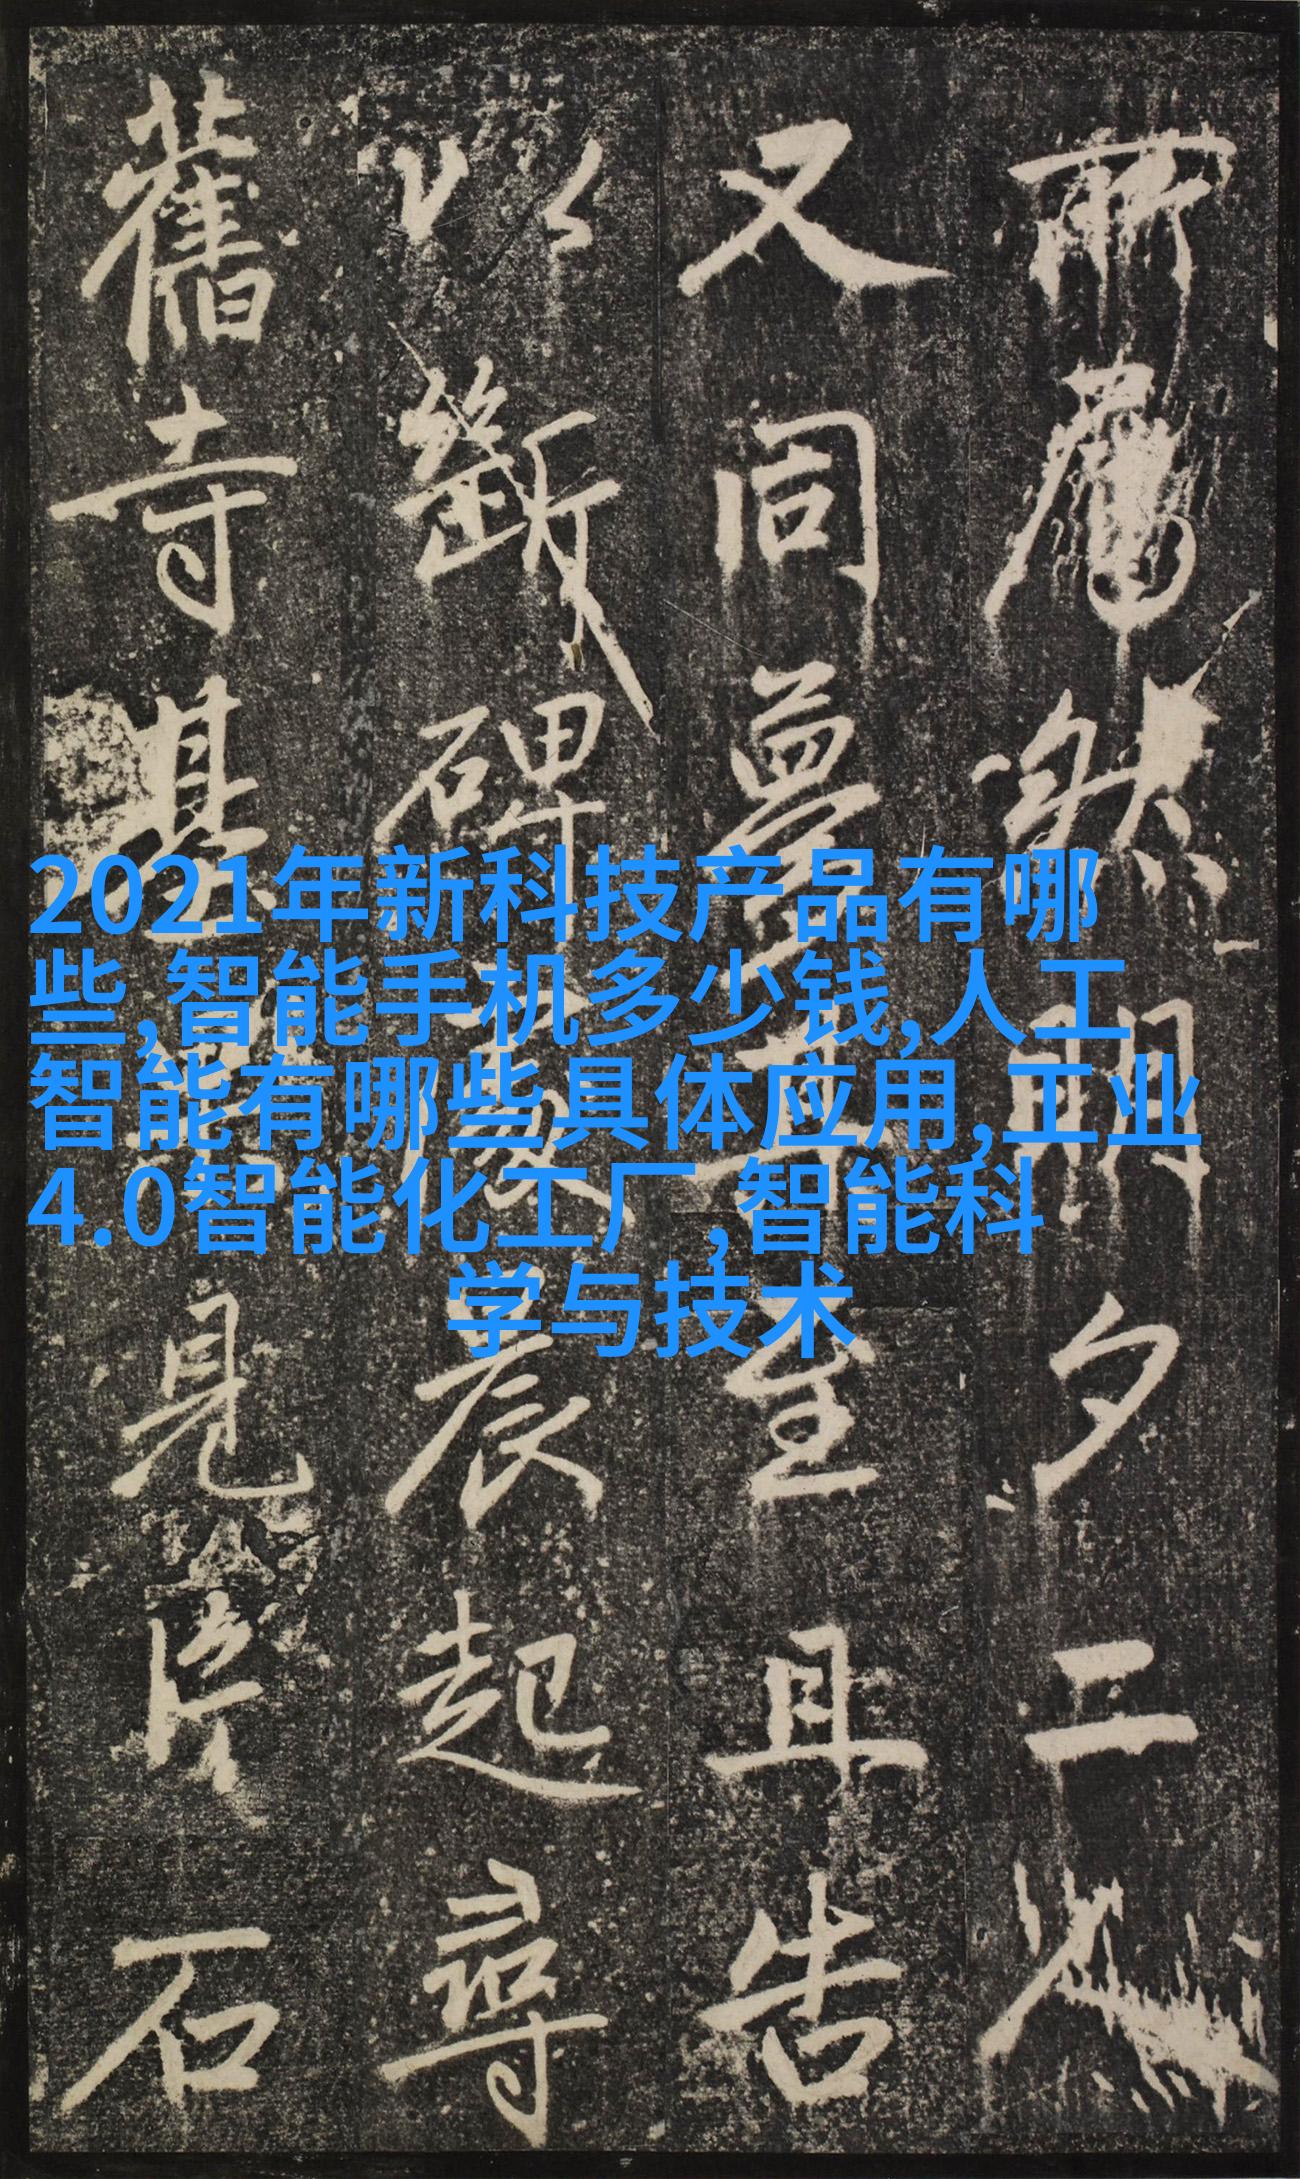 然明夕二
又同夢至且告
以斷碑晨起尋
舊寺基見片石
2021年新科技产品有哪
些,智能手机多少钱,人工
智能有哪些具体应用,工业
4.0智能化工厂,智能科
学与技术